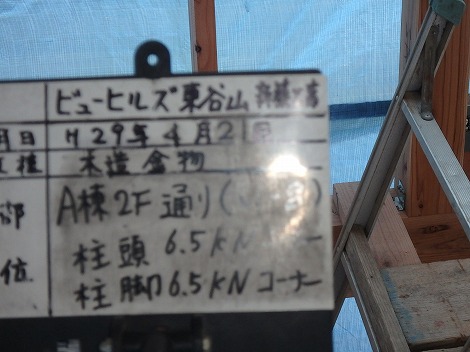 ビューヒルズ東谷山
月日 H29年4月21日
工種 木造金物
部位 A棟2F通り(
柱頭 6.5KN
柱脚 6.5KN コーナー